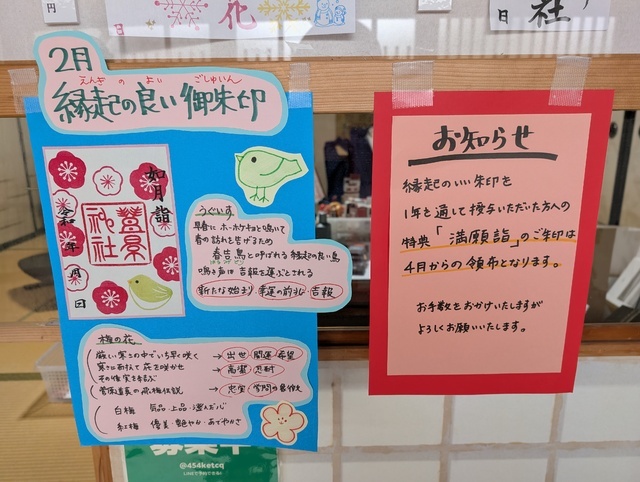 円
花
日
社
2月
えんぎ の よい ごしゅいん
縁起の良い御朱印
如月詣
令和 年 月 日
神社
うぐいす
早春に ホーホケキョと鳴いて
春の訪れを告げるため
春告鳥と呼ばれる縁起の良い鳥
鳴き声は 吉報を運ぶとされる
新たな始まり・幸運の前兆・吉報
梅の花
厳しい寒さの中でいち早く咲く → 出世 開運 希望
寒さに耐えて 花を咲かせ → 高潔 忍耐
その後 実をむすぶ
菅原道真の飛梅伝説 → 忠実 学問の象徴
白梅 気品・上品・澄んだ心
紅梅 優美・艶やか・あでやかさ
お知らせ
縁起のいい朱印を
1年を通して授与いただいた方への
特典「満願詣」のご朱印は
4月からの頒布となります。
お手数をおかけいたしますが
よろしくお願いいたします。
募集中
@454ketcq